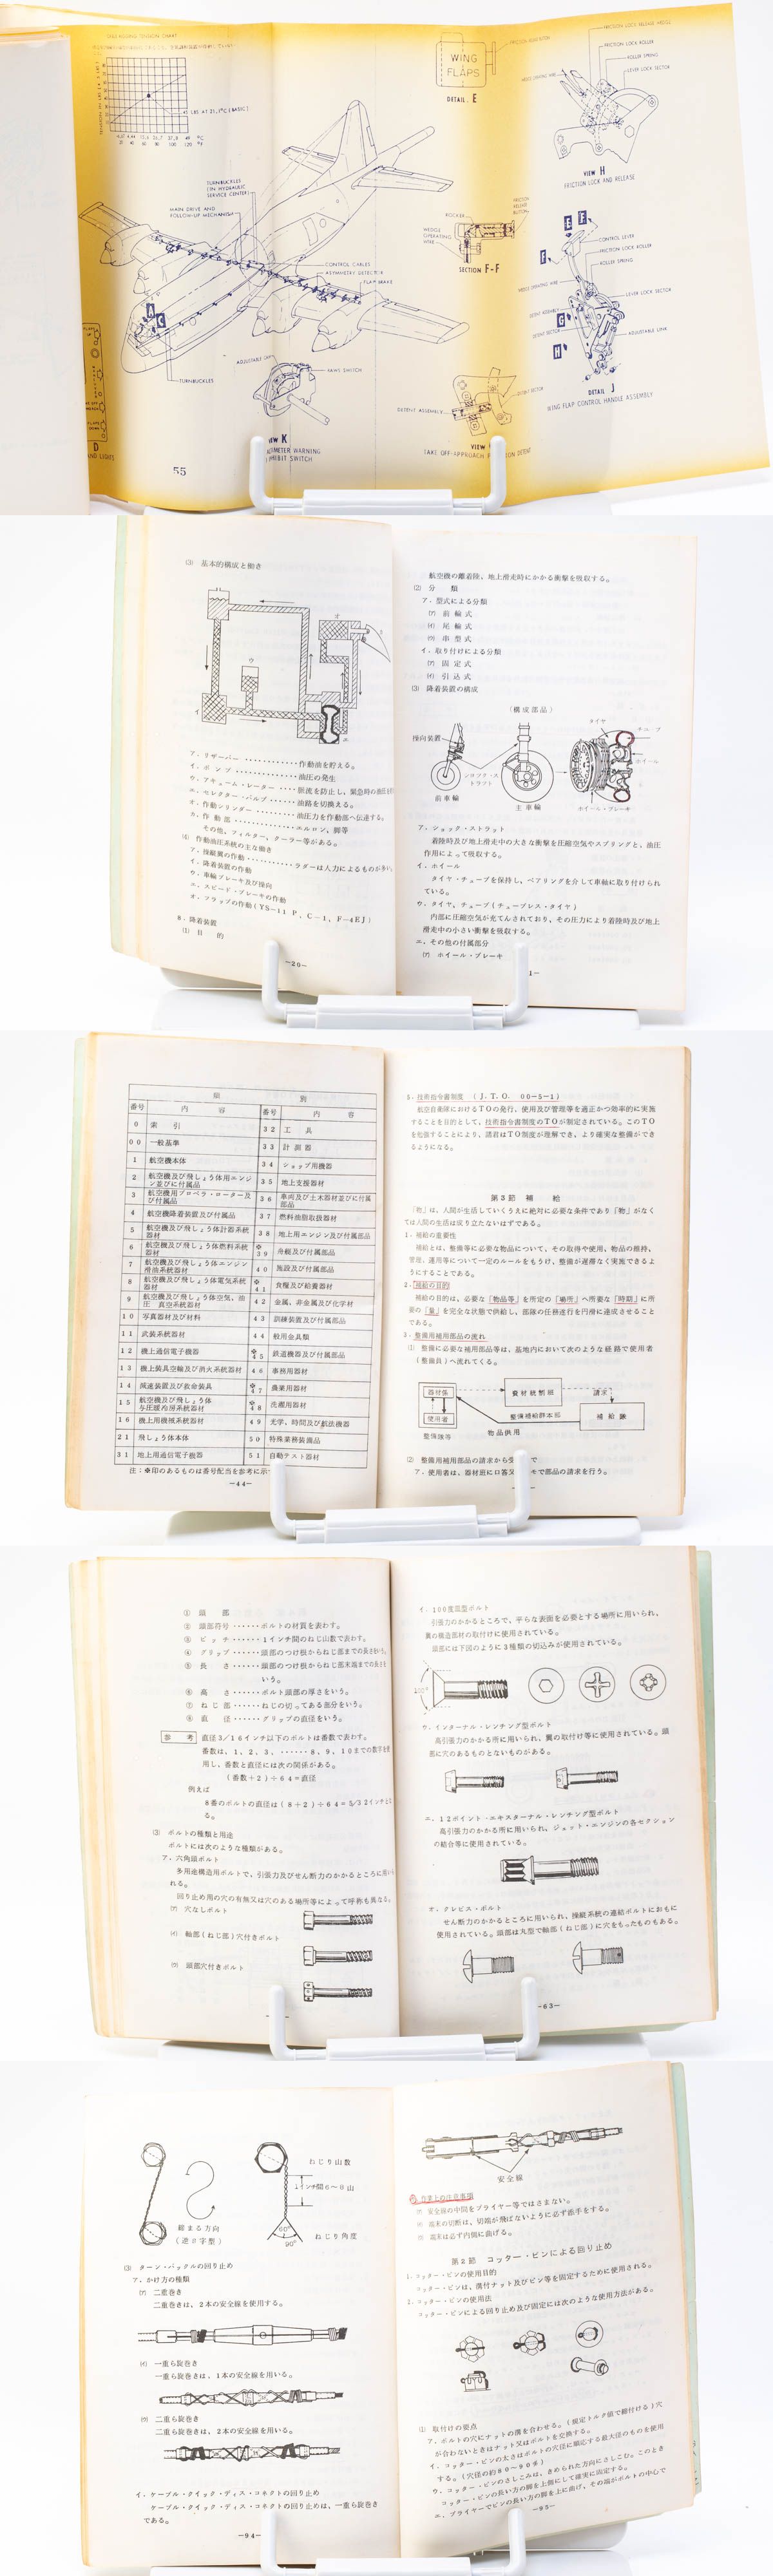 WING
FLAPS
DETAIL E
FRICTION LOCK ROLLER
ROLLER SPRING
LEVER LOCK SECTOR
VIEW H
FRICTION LOCK AND RELEASE
TURNBUCKLES
(IN HYDRAULIC
SERVICE CENTER)
MAIN DRIVE AND
FOLLOW-UP MECHANISM
ROCKER
WEDGE
OPERATING
WIRE
FRICTION
RELEASE
BUTTON
SECTION F-F
CONTROL CABLES
ASYMMETRY DETECTOR
FLAP BRAKE
E F
CONTROL LEVER
FRICTION LOCK ROLLER
ROLLER SPRING
LEVER LOCK SECTOR
DETENT ASSEMBLY
DETENT SECTOR
ADJUSTABLE LINK
A
C
F
G
H
TURNBUCKLES
ADJUSTABLE CAM
PAWS SWITCH
DETENT ASSEMBLY
DETENT SECTOR
DETAIL J
WING FLAP CONTROL HANDLE ASSEMBLY
D
AND LIGHTS
VIEW K
METER WARNING
HIBIT SWITCH
VIEW
TAKE OFF-APPROACH
DETENT
55
(3) 基本的構成と働き
オ
ウ
イ
エ
ア. リザーバー …………作動油を貯える。
イ. ポンプ …………油圧の発生
ウ. アキューム・レーター ……脈流を防止し、緊急時の油圧を
エ. セレクター・バルブ ……油路を切換える。
オ. 作動シリンダー …………油圧力を作動部へ伝達する。
カ. 作動部 …………エルロン、脚等
その他、フィルター、クーラー等がある。
(4) 作動油圧系統の主な働き
ア. 操縦翼の作動 …………ラダーは人力によるものが多い。
イ. 降着装置の作動
ウ. 車輪ブレーキ及び操向
エ. スピード・ブレーキの作動
オ. フラップの作動(YS-11 P、C-1、F-4EJ)
8. 降着装置
(1) 目 的
-20-
航空機の離着陸、地上滑走時にかかる衝撃を吸収する。
(2) 分 類
ア. 型式による分類
(ア) 前輪式
(イ) 尾輪式
(ウ) 串型式
イ. 取り付けによる分類
(ア) 固定式
(イ) 引込式
(3) 降着装置の構成
(構成部品)
操向装置
タイヤ
チューブ
ホイール
ショック・ス
トラフト
前車輪
主車輪
ホイール・ブレーキ
ア. ショック・ストラット
着陸時及び地上滑走中の大きな衝撃を圧縮空気やスプリングと、油圧
作用によって吸収する。
イ. ホイール
タイヤ・チューブを保持し、ベアリングを介して車軸に取り付けられ
ている。
ウ. タイヤ、チューブ(チューブレス・タイヤ)
内部に圧縮空気が充てんされており、その圧力により着陸時及び地上
滑走中の小さい衝撃を吸収する。
エ. その他の付属部分
(ア) ホイール・ブレーキ
1-
類 別
番号 内 容 番号 内 容
0 索 引 32 工 具
00 一般基準 33 計測器
1 航空機本体 34 ショップ用機器
2 航空機及び飛しょう体用エンジン並びに付属品 35 地上支援器材
3 航空機用プロペラ・ローター及び付属品 36 車両及び土木器材並びに付属部品
4 航空機降着装置及び付属品 37 燃料油脂取扱器材
5 航空機及び飛しょう体計器系統器材 38 地上用エンジン及び付属部品
6 航空機及び飛しょう体燃料系統器材 ※39 舟艇及び付属部品
7 航空機及び飛しょう体エンジン滑油系統器材 40 施設及び付属品
8 航空機及び飛しょう体電気系統器材 ※41 食糧及び給養器材
9 航空機及び飛しょう体空気、油圧 真空系統器材 42 金属、非金属及び化学材
10 写真器材及び材料 43 訓練装置及び付属部品
11 武装系統器材 44 般用金具類
12 機上通信電子機器 ※45 鉄道機器及び付属部品
13 機上装具空輸及び消火系統器材 46 事務用器材
14 減速装置及び救命装具 ※47 農業用器材
15 航空機及び飛しょう体与圧暖冷房系統器材 ※48 洗濯用器材
16 機上用機械系統器材 49 光学、時間及び航法機器
21 飛しょう体本体 50 特殊業務装備品
31 地上用通信電子機器 51 自動テスト器材
注:※印のあるものは番号配当を参考に示
-44-
5. 技術指令書制度 (J.T.O. 00-5-1)
航空自衛隊におけるTOの発行、使用及び管理等を適正かつ効率的に実施
することを目的として、技術指令書制度のTOが制定されている。このTO
を勉強することにより、諸君はTO制度が理解でき、より確実な整備ができ
るようになる。
第3節 補 給
「物」は、人間が生活していくうえに絶対に必要な条件であり「物」がなく
ては人間の生活は成り立たないはずである。
1. 補給の重要性
補給とは、整備等に必要な物品について、その取得や使用、物品の維持、
管理、運用等について一定のルールをもうけ、整備が遅滞なく実施できるよ
うにすることである。
2. 補給の目的
補給の目的は、必要な「物品等」を所定の「場所」へ所要な「時期」に所
要の「量」を完全な状態で供給し、部隊の任務遂行を円滑に達成させること
である。
3. 整備用補用部品の流れ
(1) 整備に必要な補用部品等は、基地内において次のような経路で使用者
(整備員)へ流れてくる。
器材係
資材統制班
請求
使用者
整備補給群本部
補給隊
整備隊等
物品供用
(2) 整備用補用部品の請求から受 で
ア. 使用者は、器材班に口答又 モで部品の請求を行う。
① 頭 部
② 頭部符号……ボルトの材質を表わす。
③ ピッチ……1インチ間のねじ山数で表わす。
④ グリップ……頭部のつけ根からねじ部までの長さをいう。
⑤ 長 さ……頭部のつけ根からねじ部末端までの長さを
いう。
⑥ 高 さ……ボルト頭部の厚さをいう。
⑦ ねじ部……ねじの切ってある部分をいう。
⑧ 直 径……グリップの直径をいう。
参 考 直径3/16インチ以下のボルトは番数で表わす。
番数は、1、2、3、……8、9、10までの数字を使
用し、番数と直径には次の関係がある。
(番数+2)÷64=直径
例えば
8番のボルトの直径は(8+2)÷64=5/32インチとな
る。
(3) ボルトの種類と用途
ボルトには次のような種類がある。
ア. 六角頭ボルト
多用途構造用ボルトで、引張力及びせん断力のかかるところに用い
れる。
回り止め用の穴の有無又は穴のある場所等によって呼称も異なる。
(ア) 穴なしボルト
(イ) 軸部(ねじ部)穴付きボルト
(ウ) 頭部穴付きボルト
イ. 100度皿型ボルト
引張力のかかるところで、平らな表面を必要とする場所に用いられ、
翼の構造部材の取付けに使用されている。
頭部には下図のように3種類の切込みが使用されている。
100°
ウ. インターナル・レンチング型ボルト
高引張力のかかる所に用いられ、翼の取付け等に使用されている。頭
部に穴のあるものとないものがある。
エ. 12ポイント・エキスターナル・レンチング型ボルト
高引張力のかかる所に用いられ、ジェット・エンジンの各セクション
の結合等に使用されている。
オ. クレビス・ボルト
せん断力のかかるところに用いられ、操縦系統の連結ボルトにおもに
使用されている。頭部は丸型で軸部(ねじ部)に穴をもったものもある。
-63-
ねじり山数
1インチ間6~8山
締まる方向
(逆S字型)
60°
90°
ねじり角度
(3) ターン・バックルの回り止め
ア. かけ方の種類
(ア) 二重巻き
二重巻きは、2本の安全線を使用する。
(イ) 一重ら旋巻き
一重ら旋巻きは、1本の安全線を用いる。
(ウ) 二重ら旋巻き
二重ら旋巻きは、2本の安全線を用いる。
イ. ケーブル・クイック・ディス・コネクトの回り止め
ケーブル・クイック・ディス・コネクトの回り止めは、一重ら旋巻き
である。
-94-
安全線
作業上の注意事項
(ア) 安全線の中間をプライヤー等ではさまない。
(イ) 端末の切断は、切端が飛ばないように必ず添手をする。
(ウ) 端末は必ず内側に曲げる。
第2節 コッター・ピンによる回り止め
1. コッター・ピンの使用目的
コッター・ピンは、溝付ナット及びピン等を固定するために使用される。
2. コッター・ピンの使用法
コッター・ピンによる回り止め及び固定には次のような使用方法がある。
(1) 取付けの要点
ア. ボルトの穴にナットの溝を合わせる。(規定トルク値で締付ける)穴
が合わないときはナット又はボルトを交換する。
イ. コッター・ピンの太さはボルトの穴径に順応する最大径のものを使用
する。(穴径の約80~90%)
ウ. コッター・ピンのさしこみは、きめられた方向にさしこむ。このとき
コッター・ピンの長い方の脚を上側にして確実に固定する。
エ. プライヤーでピンの長い方の脚を上に曲げ、その端がボルトの中心で
-95-